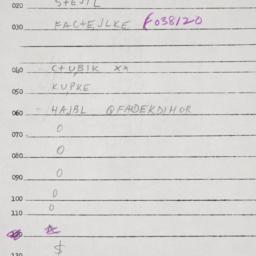 020 S+EJIL
030 FAC+EJLKE F038120
040 C+UBIK xx
050 KUPKE
060 HAJBL QFADEKDIHOR
070 0
080 0
090 0
100 0
110 0
☆
130 $